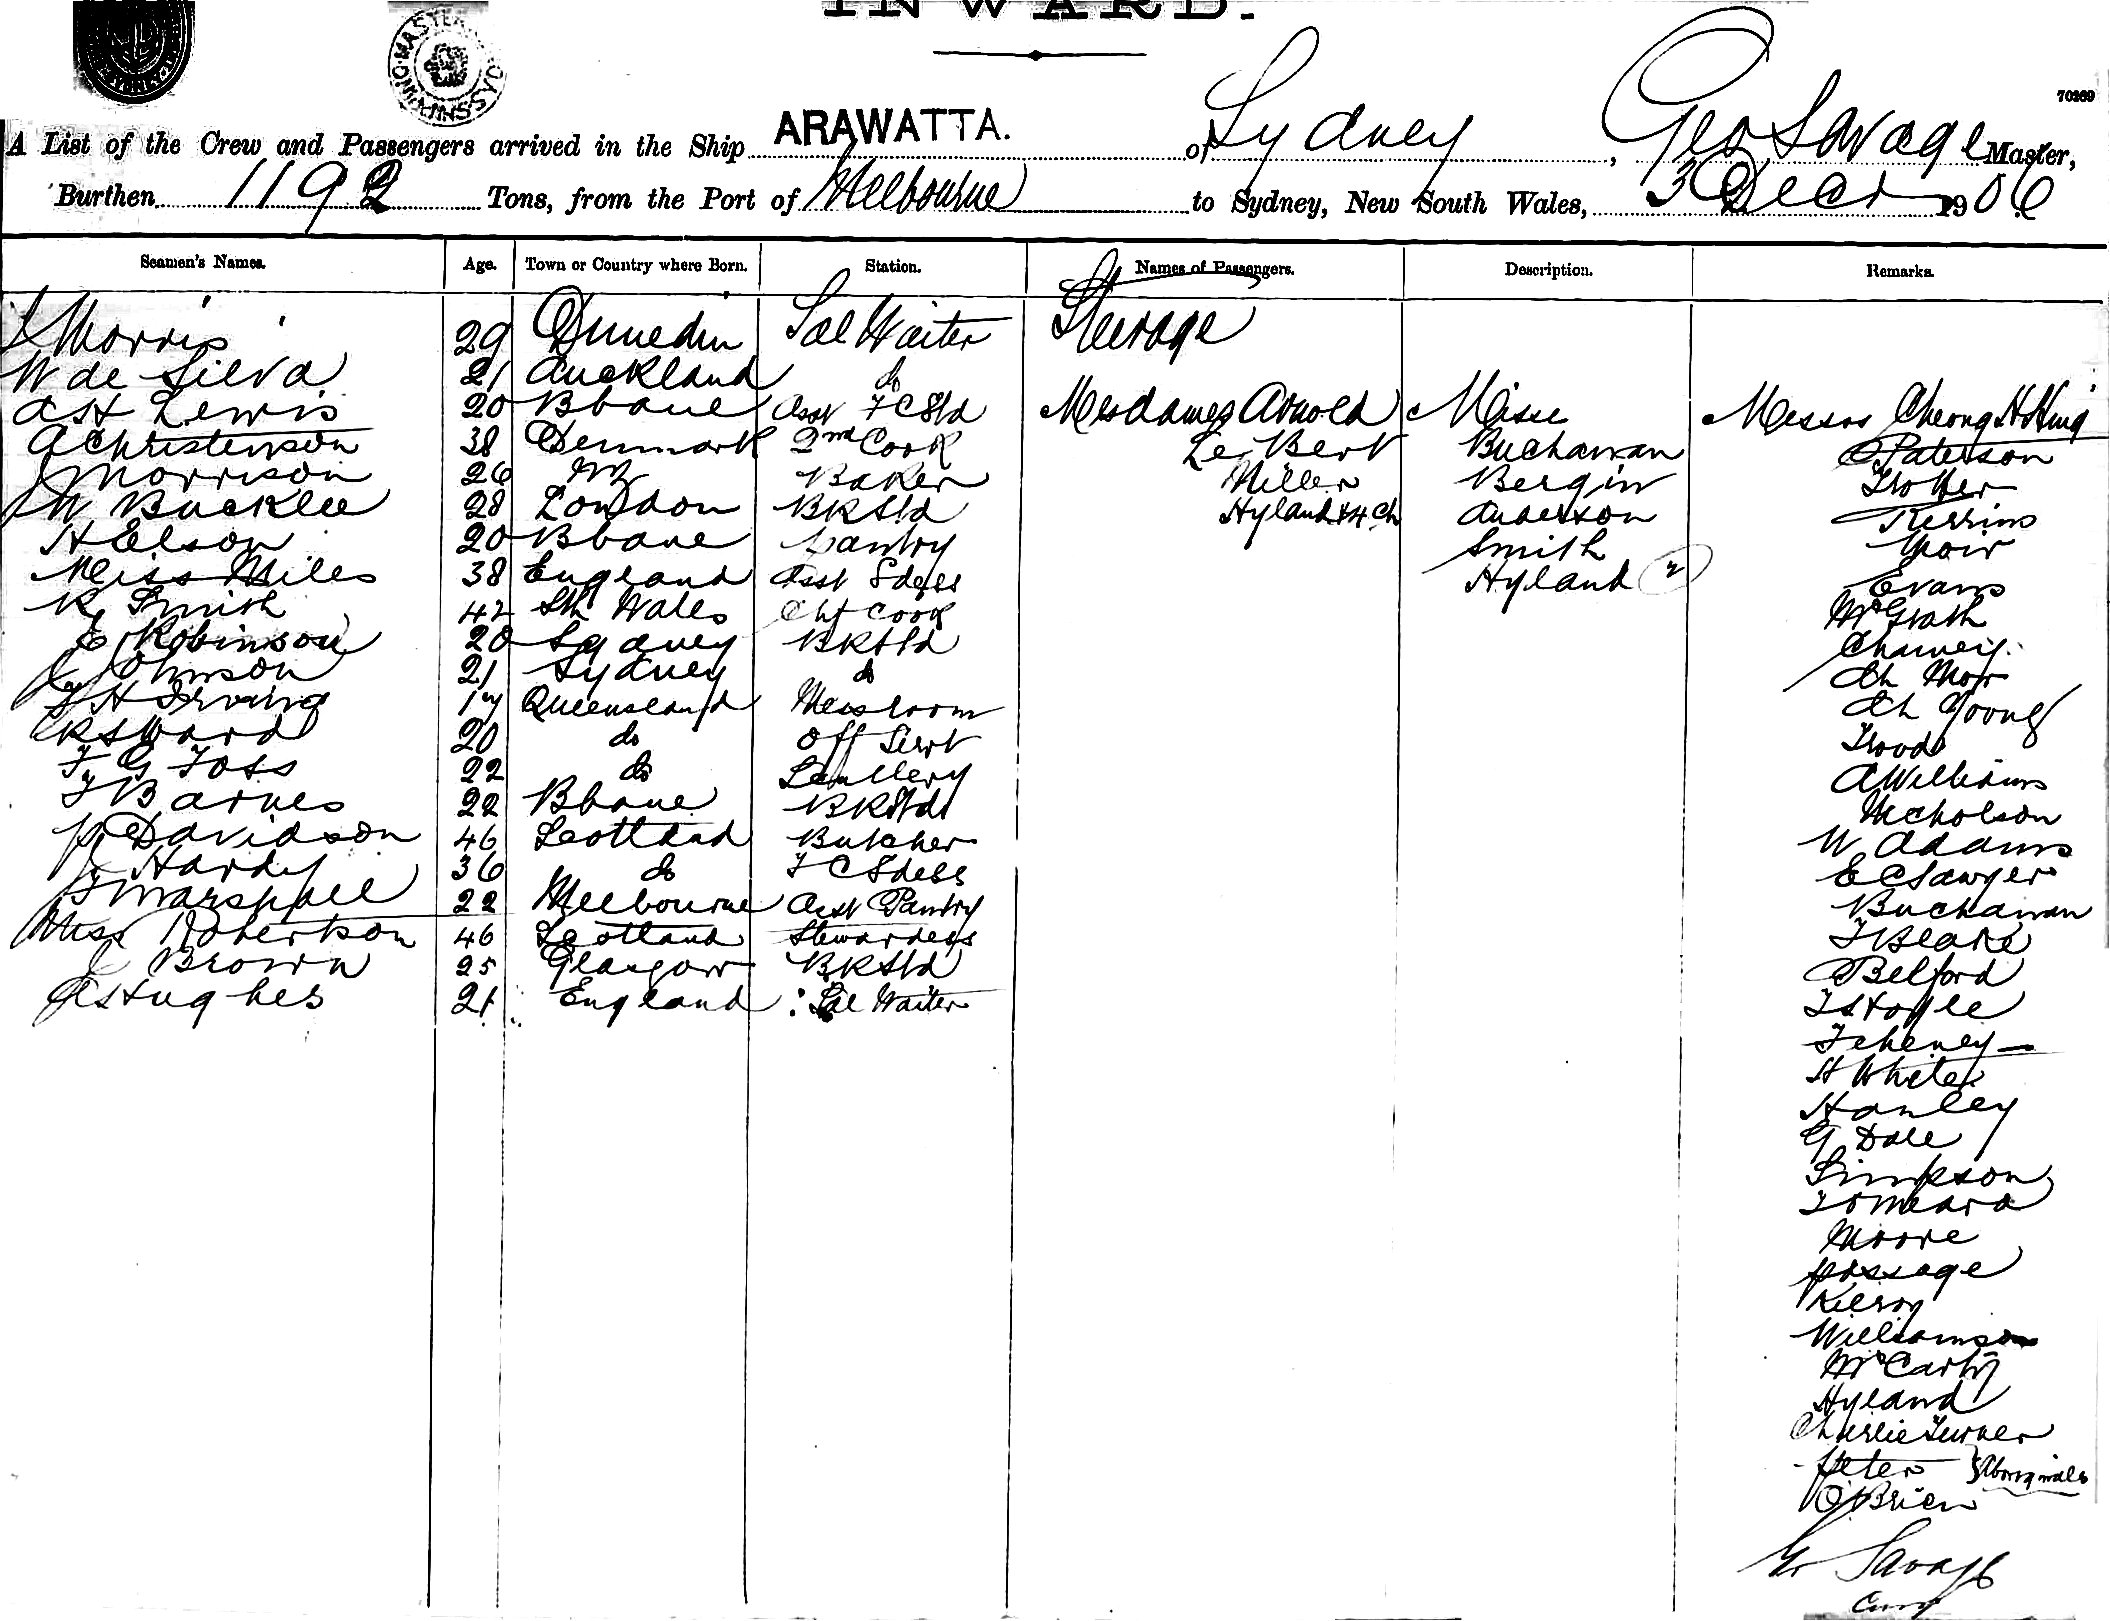 INWARD.
70269
A List of the Crew and Passengers arrived in the Ship ARAWATTA. of Sydney, Geo Savage Master,
Burthen 1192 Tons, from the Port of Melbourne to Sydney, New South Wales, 3 Decr 1906
Seamen's Names. Age. Town or Country where Born. Station. Names of Passengers. Description. Remarks.
Morris 29 Dunedin Sal Waiter Steerage
W de Silva 21 Auckland do
A H Lewis 20 Bbane Asst F C Std Mesdames Arnold Misse Messrs Cheong H Hing
A Christenson 38 Denmark 2nd Cook Le Bert Buchanan Paterson
J Morrison 26 NZ Baker Miller Bergin Trotter
W Bucklee 28 London BK Std Hyland & 4 Ch Anderson Kerrins
H Elson 20 Bbane Pantry Smith Moir
Miss Miles 38 England Asst Sdess Hyland (2) Evans
R Smith 42 Sth Wales Chf Cook McGrath
E Robinson 20 Sydney BK Std
J Johnson 21 Sydney do Ah Mow
F H Irving 17 Queensland Messroom Ah Young
R S Ward 20 do Off Servt
F G Foss 22 do Scullery A Williams
F Barnes 22 Bbane BK Std Nicholson
J Davidson 46 Scotland Butcher W Adams
J Hardy 36 do F C Sdess E C Sawyer
F Marshall 22 Melbourne Asst Pantry Buchanan
Miss Robertson 46 Scotland Stewardess F Blake
J Brown 25 Glasgow BK Std Belford
A Hughes 21 England Sal Waiter F Stoyle
F Cheney
H White
Hanley
G Dale
Simpson
F O'Meara
Moore
Possage
Kilroy
Williamson
McCarthy
Hyland
Charlie Turner
Peter } Aboriginals
O'Brien
Geo Savage